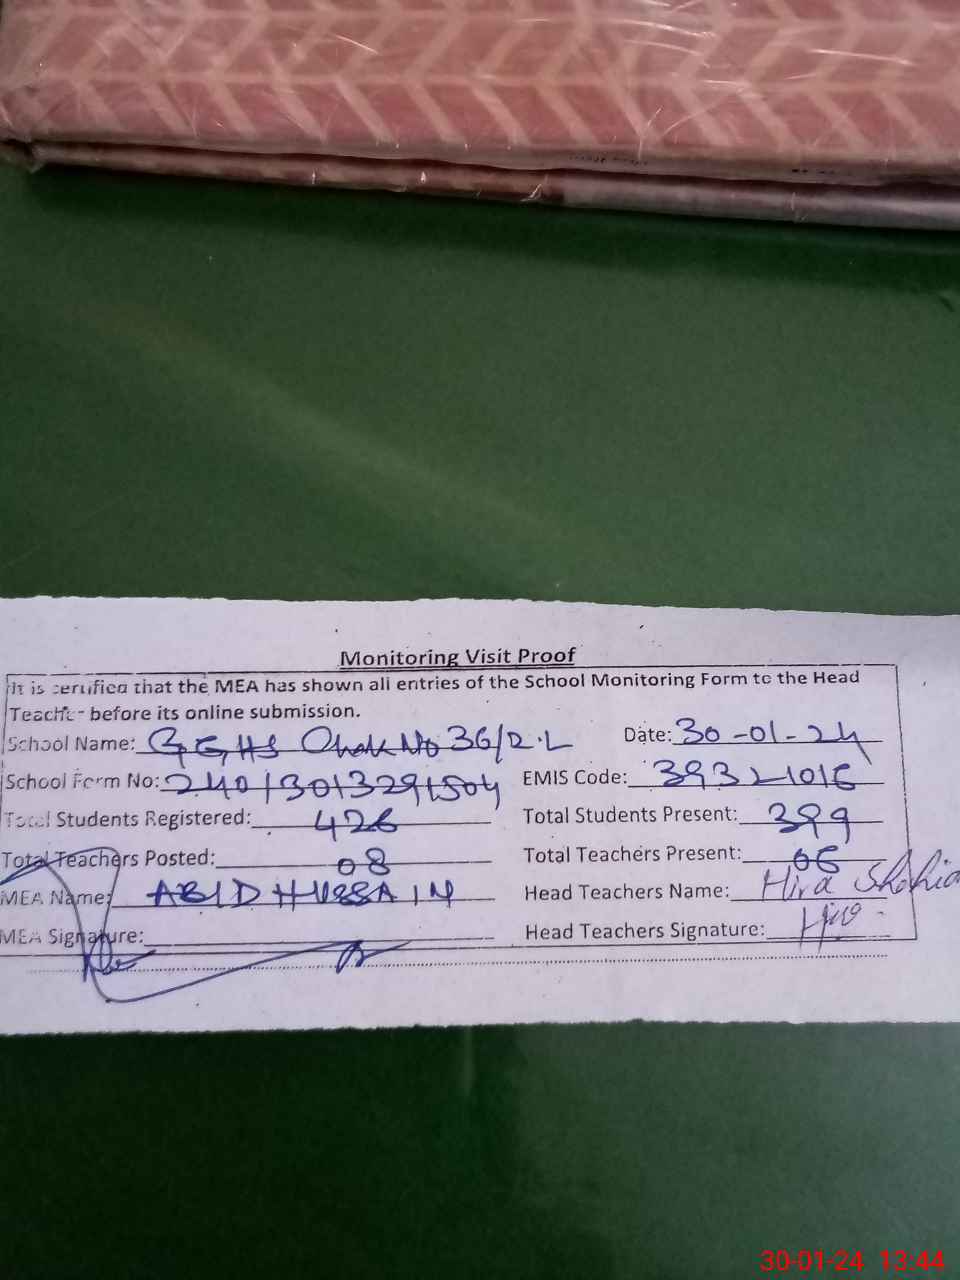 Monitoring Visit Proof
It is certified that the MEA has shown all entries of the School Monitoring Form to the Head
Teacher before its online submission.
School Name: GGHS Chak No 36/2.L Date: 30-01-24
School Form No: EMIS Code:
Total Students Registered: 426 Total Students Present: 399
Total Teachers Posted: 08 Total Teachers Present: 06
MEA Name: ABID HUSSAIN Head Teachers Name: Hira
MEA Signature: Head Teachers Signature:
30-01-24 13:44